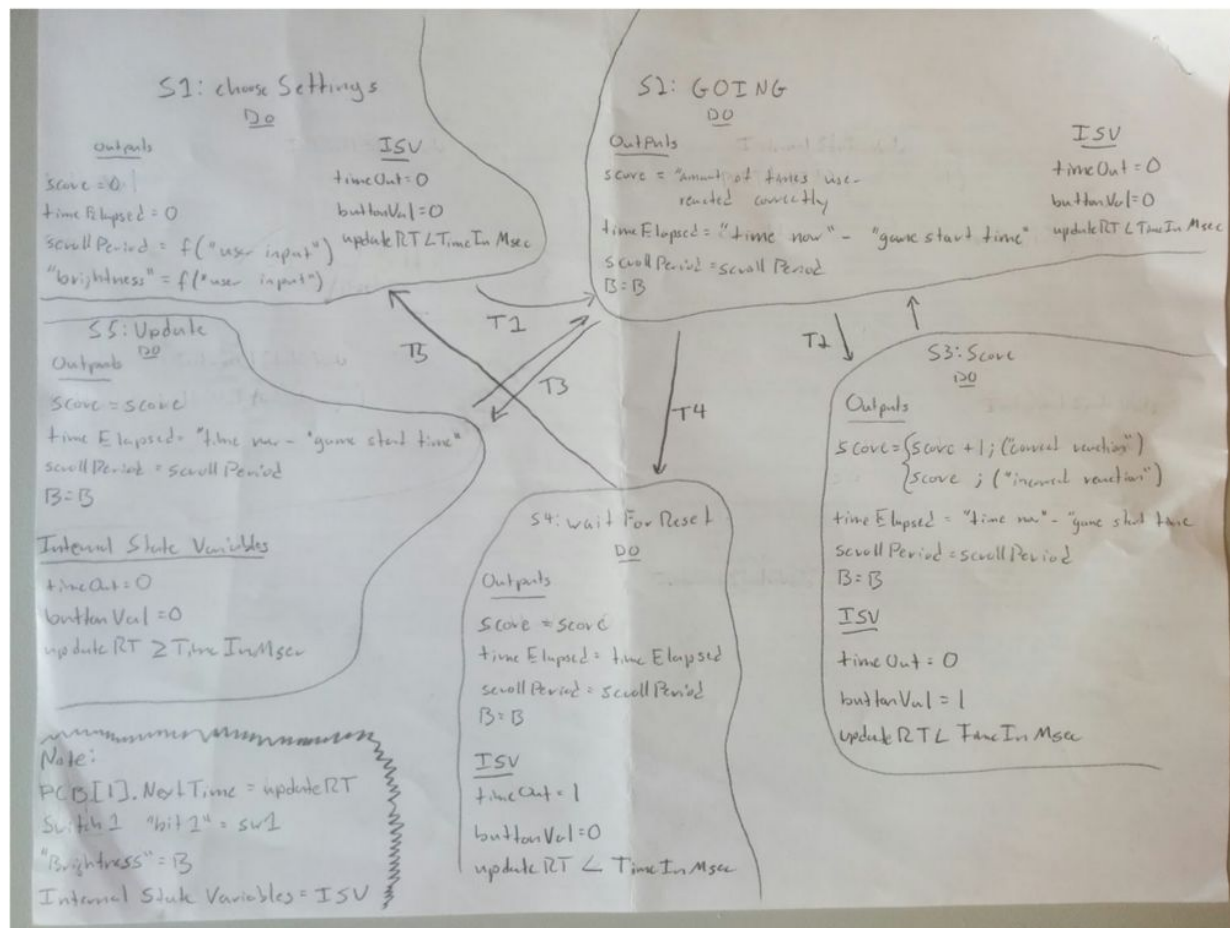 S1: choose Settings
DO
Outputs
ISV
score = 0
timeOut = 0
timeElapsed = 0
buttonVal = 0
scrollPeriod = f("user input")
updateRT < TimeInMsec
"brightness" = f("user input")
S2: GOING
DO
Outputs
ISV
score = "amount of times user
reacted correctly
timeOut = 0
buttonVal = 0
timeElapsed = "time now" - "game start time"
updateRT < TimeInMsec
scrollPeriod = scrollPeriod
B = B
T1
T5
T3
T4
T2
S5: Update
DO
Outputs
score = score
time Elapsed = "time now - "game start time"
scrollPeriod = scrollPeriod
B = B
Internal State Variables
timeOut = 0
buttonVal = 0
updateRT ≥ TimeInMsec
S3: Score
DO
Outputs
score = {score + 1 ; ("correct reaction")
{score ; ("incorrect reaction")
timeElapsed = "time now" - "game start time
scrollPeriod = scrollPeriod
B = B
ISV
timeOut = 0
buttonVal = 1
updateRT < TimeInMsec
S4: wait For Reset
DO
Outputs
score = score
timeElapsed = timeElapsed
scrollPeriod = scrollPeriod
B = B
ISV
timeOut = 1
buttonVal = 0
updateRT < TimeInMsec
Note:
PCB[1].NextTime = updateRT
Switch1 "bit1" = sw1
"Brightness" = B
Internal State Variables = ISV